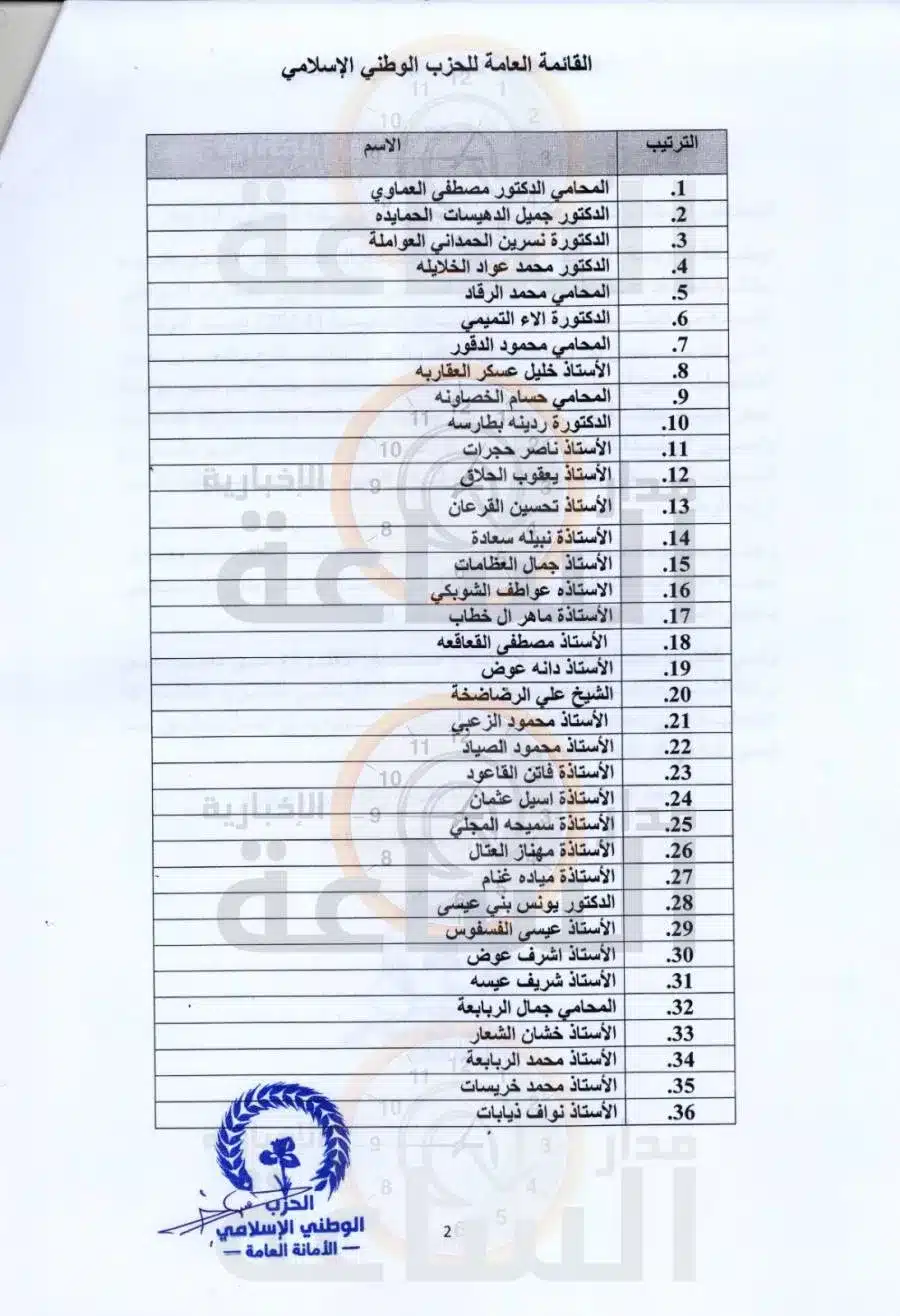 القائمة العامة للحزب الوطني الإسلامي
الترتيب الاسم
1. المحامي الدكتور مصطفى العماوي
2. الدكتور جميل الدهيسات الحمايده
3. الدكتورة نسرين الحمداني العواملة
4. الدكتور محمد عواد الخلايله
5. المحامي محمد الرقاد
6. الدكتورة الاء التميمي
7. المحامي محمود الدقور
8. الأستاذ خليل عسكر العقاربه
9. المحامي حسام الخصاونه
10. الدكتورة ردينه بطارسه
11. الأستاذ ناصر حجرات
12. الأستاذ يعقوب الحلاق
13. الأستاذ تحسين القرعان
14. الأستاذة نبيله سعادة
15. الأستاذ جمال العظامات
16. الاستاذه عواطف الشوبكي
17. الأستاذة ماهر ال خطاب
18. الأستاذ مصطفى القعاقعه
19. الأستاذ دانه عوض
20. الشيخ علي الرضاضخة
21. الأستاذ محمود الزعبي
22. الأستاذ محمود الصياد
23. الأستاذة فاتن القاعود
24. الأستاذة اسيل عثمان
25. الأستاذة سميحه المجلي
26. الأستاذة مهناز العتال
27. الأستاذة مياده غنام
28. الدكتور يونس بني عيسى
29. الأستاذ عيسى الفسفوس
30. الأستاذ اشرف عوض
31. الأستاذ شريف عيسه
32. المحامي جمال الربابعة
33. الأستاذ خشان الشعار
34. الأستاذ محمد الربابعة
35. الأستاذ محمد خريسات
36. الأستاذ نواف ذيابات
الحزب
الوطني الإسلامي
الأمانة العامة
2
مدار
الساعة
الإخبارية